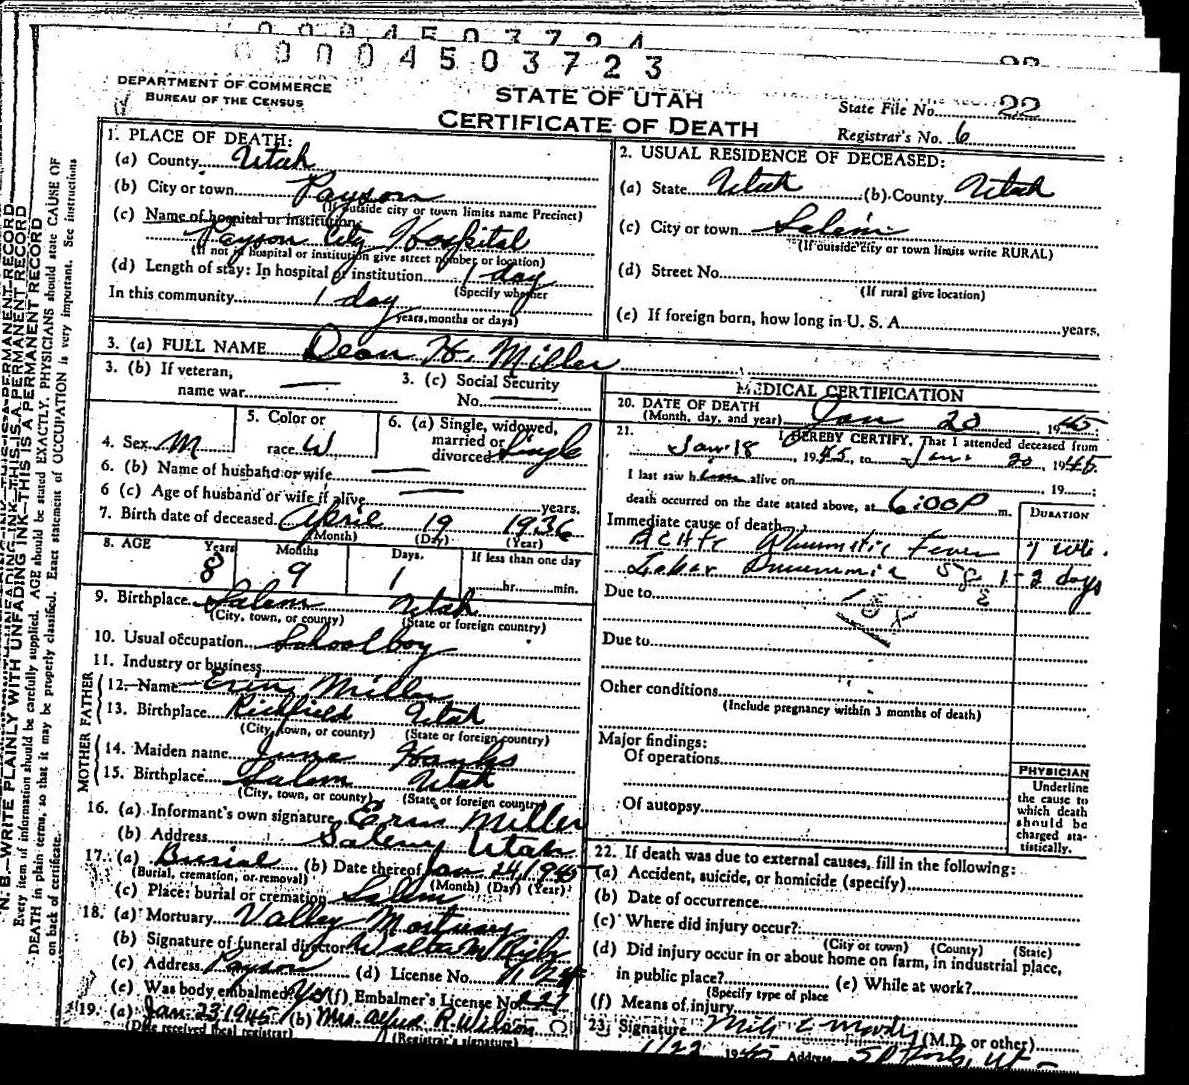 0 0 0 4 5 0 3 7 2 4
0 0 0 0 4 5 0 3 7 2 3
DEPARTMENT OF COMMERCE
BUREAU OF THE CENSUS
STATE OF UTAH
CERTIFICATE OF DEATH
State File No. 22
Registrar's No. 6
N. B.—WRITE PLAINLY WITH UNFADING INK—THIS IS A PERMANENT RECORD
Every item of information should be carefully supplied. AGE should be stated EXACTLY. PHYSICIANS should state CAUSE OF
DEATH in plain terms, so that it may be properly classified. Exact statement of OCCUPATION is very important. See instructions
on back of certificate.
1. PLACE OF DEATH:
(a) County Utah
(b) City or town Payson
(If outside city or town limits name Precinct)
(c) Name of hospital or institution:
Payson City Hospital
(If not in hospital or institution give street number or location)
(d) Length of stay: In hospital or institution 1 day
(Specify whether
In this community 1 day
years, months or days)
2. USUAL RESIDENCE OF DECEASED:
(a) State Utah (b) County Utah
(c) City or town Salem
(If outside city or town limits write RURAL)
(d) Street No.
(If rural give location)
(e) If foreign born, how long in U. S. A. years.
3. (a) FULL NAME Dean H. Miller
3. (b) If veteran,
name war —
3. (c) Social Security
No. —
4. Sex M
5. Color or
race W
6. (a) Single, widowed,
married or
divorced Single
6. (b) Name of husband or wife —
6 (c) Age of husband or wife if alive — years.
7. Birth date of deceased April 19 1936
(Month) (Day) (Year)
8. AGE Years Months Days If less than one day
8 9 1 hr. min.
9. Birthplace Salem Utah
(City, town, or county) (State or foreign country)
10. Usual occupation School boy
11. Industry or business
FATHER
12. Name Miller
13. Birthplace Richfield Utah
(City, town, or county) (State or foreign country)
MOTHER
14. Maiden name June Hanks
15. Birthplace Salem Utah
(City, town, or county) (State or foreign country)
16. (a) Informant's own signature Miller
(b) Address Salem Utah
17. (a) Burial (b) Date thereof Jan 24, 1945
(Burial, cremation, or removal) (Month) (Day) (Year)
(c) Place: burial or cremation Salem
18. (a) Mortuary Valley Mortuary
(b) Signature of funeral director
(c) Address Payson (d) License No.
(e) Was body embalmed? Yes (f) Embalmer's License No. 227
19. (a) Jan 23 1945 (b) Mrs. Alfred R. Wilson
(Date received local registrar) (Registrar's signature)
MEDICAL CERTIFICATION
20. DATE OF DEATH
(Month, day, and year) Jan 20 1945
21. I HEREBY CERTIFY, That I attended deceased from
Jan. 18, 1945, to Jan. 20, 1945.
I last saw him alive on 19 ;
death occurred on the date stated above, at 6:00 P m.
DURATION
Immediate cause of death
Acute Rheumatic Fever 1 wk.
Lobar Pneumonia 1-2 days
Due to
Due to
Other conditions
(Include pregnancy within 3 months of death)
Major findings:
Of operations
Of autopsy
PHYSICIAN
Underline
the cause to
which death
should be
charged sta-
tistically.
22. If death was due to external causes, fill in the following:
(a) Accident, suicide, or homicide (specify)
(b) Date of occurrence
(c) Where did injury occur?
(City or town) (County) (State)
(d) Did injury occur in or about home on farm, in industrial place,
in public place? (e) While at work?
(Specify type of place
(f) Means of injury
23. Signature Moody (M.D. or other)
1/22 1945 Address Sp Fork, Ut